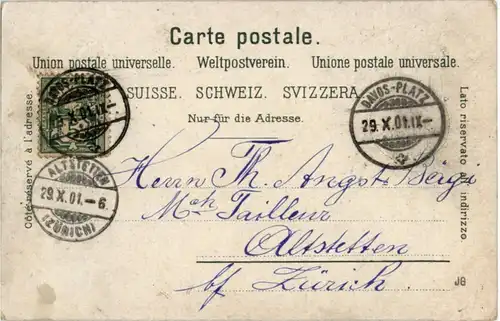 Carte postale.
Union postale universelle. Weltpostverein. Unione postale universale.
SUISSE. SCHWEIZ. SVIZZERA.
Nur für die Adresse.
Côté réservé à l'adresse.
Lato riservato all' indirizzo.
DAVOS-PLATZ
29.X.01.IX-
DAVOS-PLATZ
29.X.01.IX-
ALTSTETTEN
29.X.01.-6.
(ZÜRICH)
Herrn Th. Angst
Tailleur
Altstetten
bf Zürich
JB